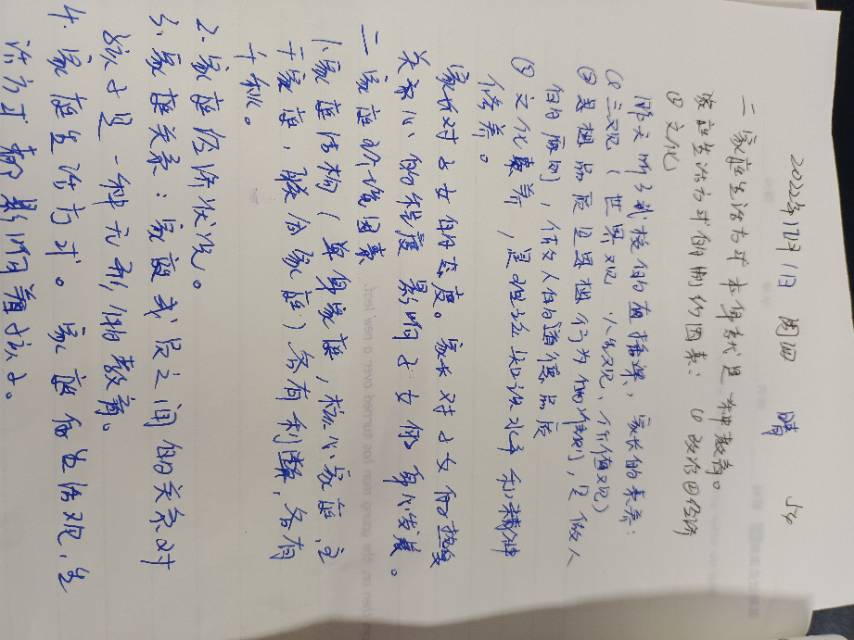 2022年12月1日 周四 晴
二、家庭生活方式本身就是一种教育。
家庭生活方式的制约因素：①政治②经济
③文化
昨天听了我校的直播课，家长的素养：
①三观（世界观、人生观、价值观）
②思想品质是思想行为的准则，是做人
的原则，做人的道德品质
③文化素养，是包括知识水平和精神
修养。
家长对子女的态度。家长对子女的热爱
关心的程度影响子女的身心发展。
二、家庭环境因素
1.家庭结构（单身家庭，核心家庭，主
干家庭，联合家庭）各有利弊，各有
千秋。
2.家庭经济状况。
3.家庭关系：家庭成员之间的关系对
孩子是一种无形的教育。
4.家庭生活方式。家庭的生活观，生
活方式都影响着孩子。